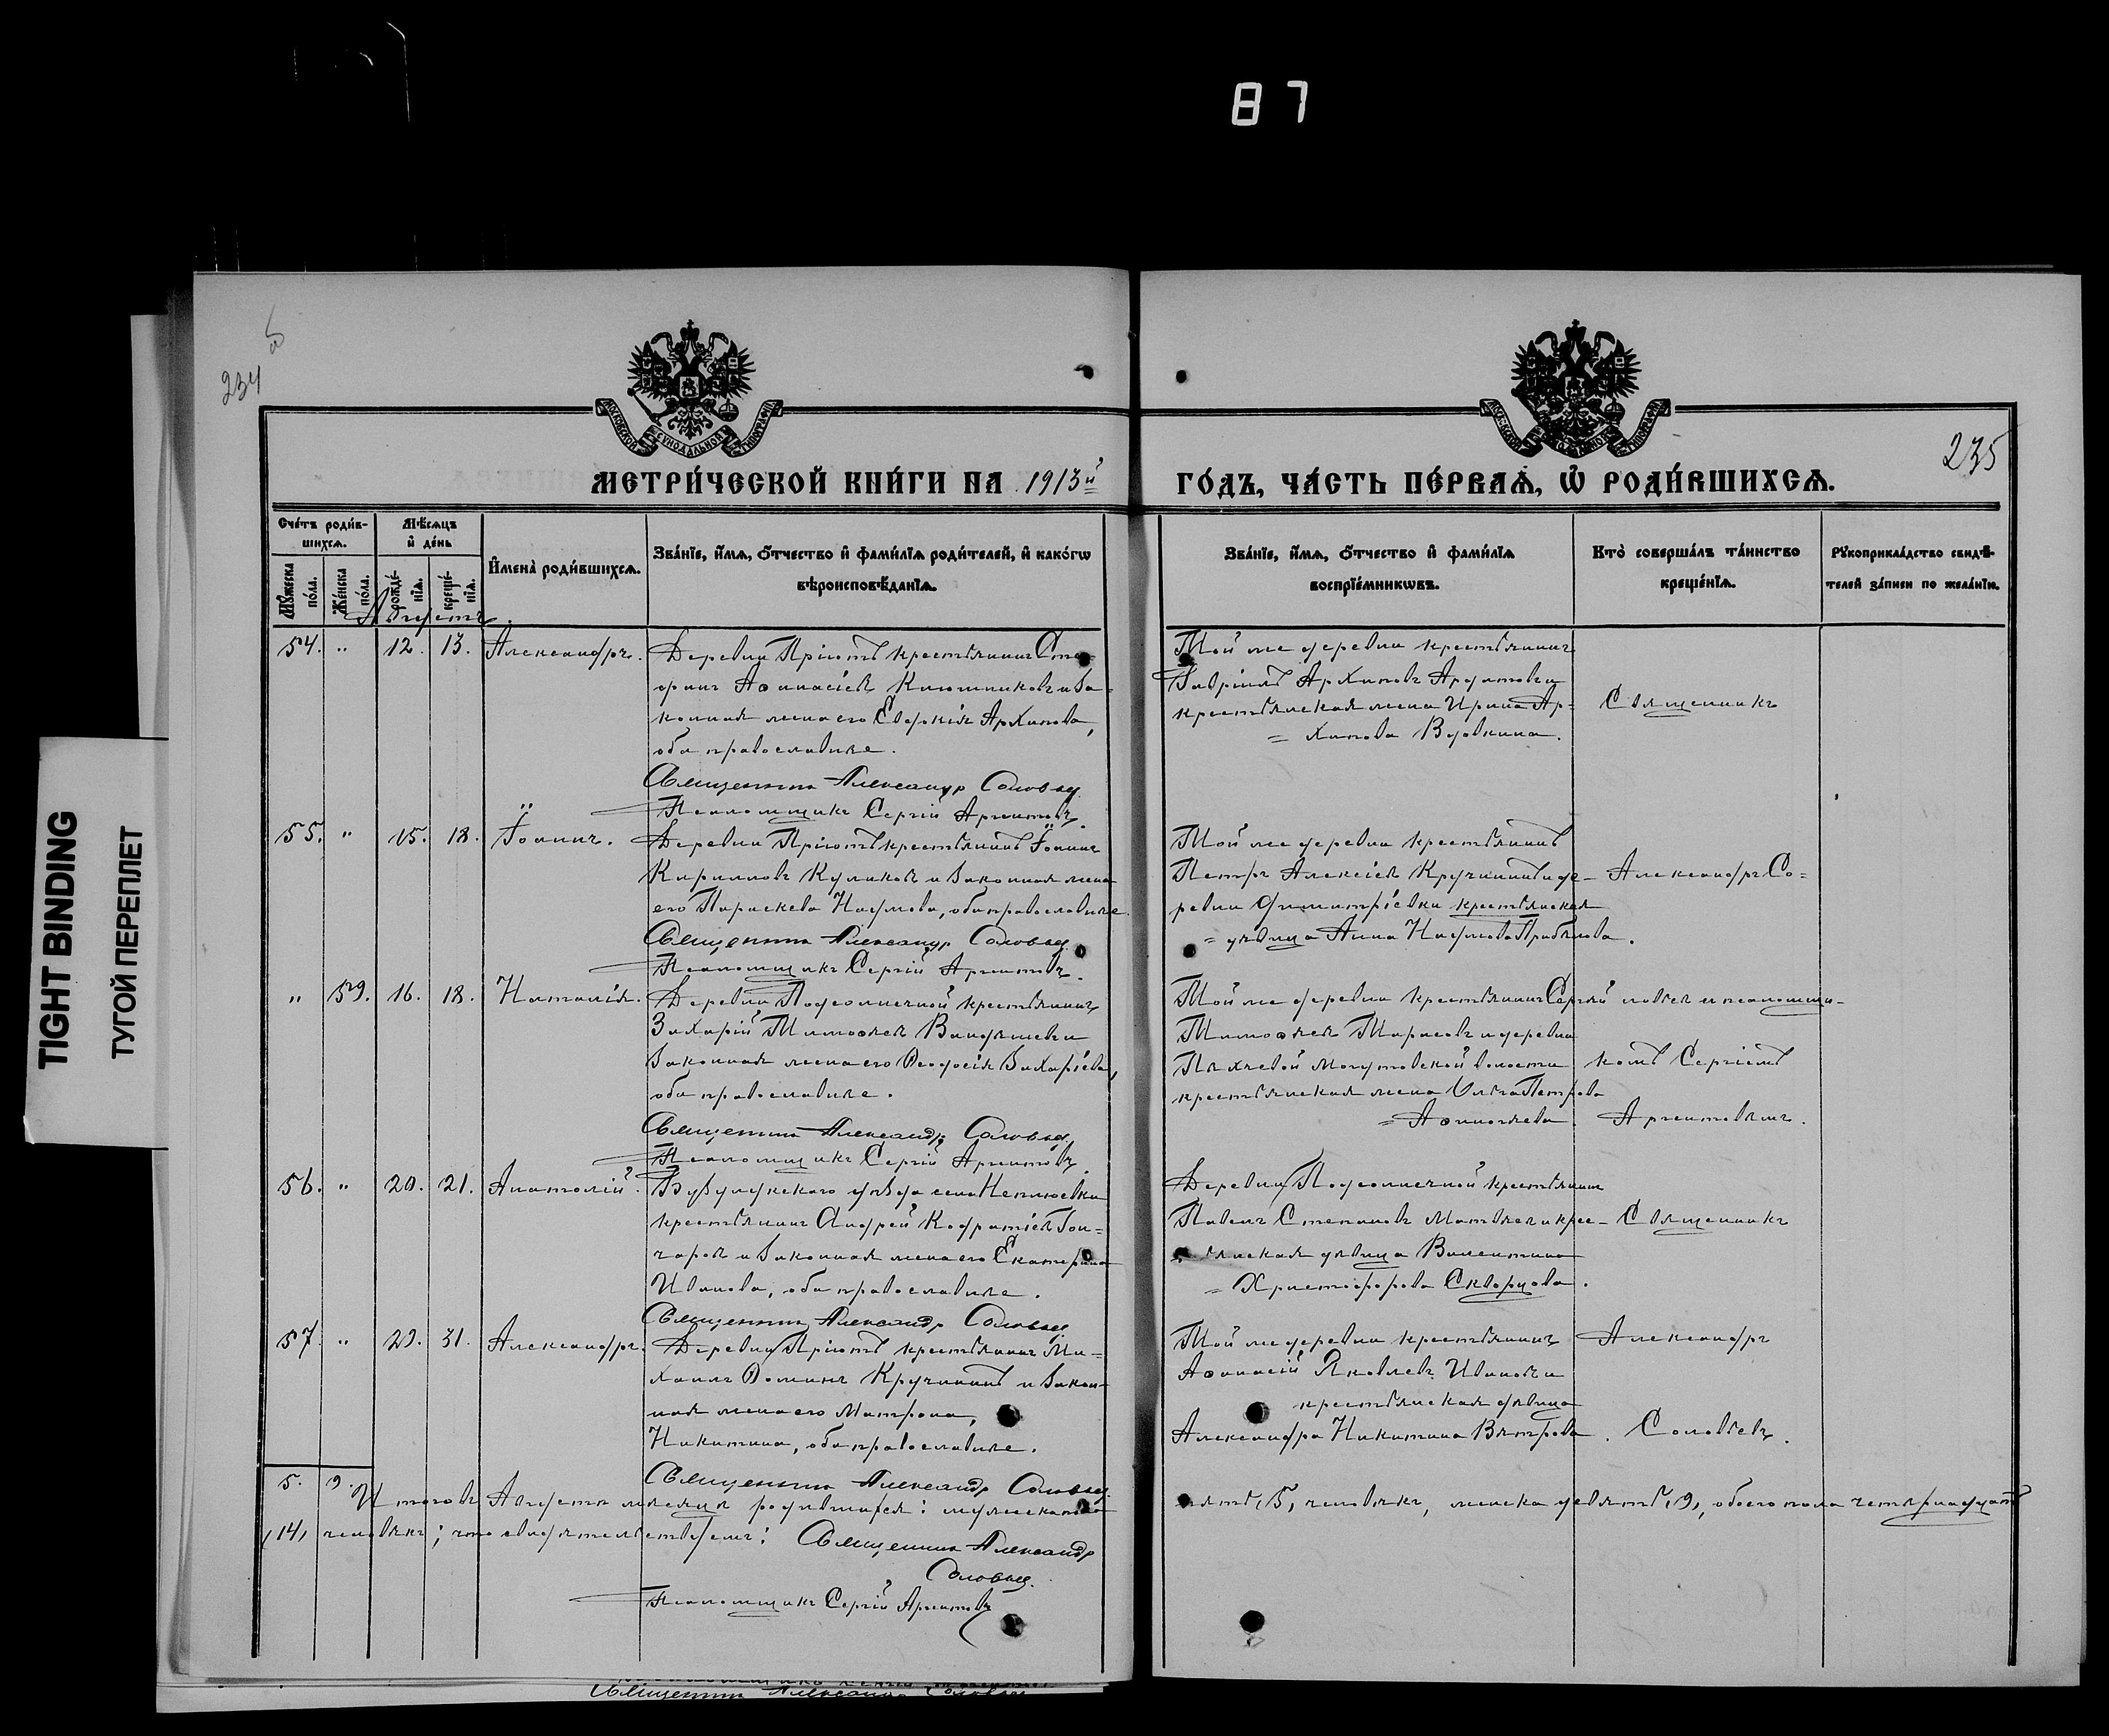 87
TIGHT BINDING
ТУГОЙ ПЕРЕПЛЕТ
234
235
МОСКОВСКОЙ СѴНОДАЛЬНОЙ ТИПОГРАФІИ
МЕТРИ́ЧЕСКОЙ КНИ́ГИ НА 1913й ГО́ДЪ, ЧА́СТЬ ПЕ́РВАѦ, Ѡ҆ РОДИ́ВШИХСѦ.
Сче́тъ роди́в-
шихсѧ.
Мѣ́сѧцъ
и҆ де́нь
И҆мена̀ роди́вшихсѧ.
Зва́нїе, и҆́мѧ, ѻ҆́тчество и҆ фами́лїѧ роди́телей, и҆ како́гѡ
вѣроисповѣ́данїѧ.
Мꙋ́жеска
по́ла.
Же́нска
по́ла.
рожде́-
нїѧ.
креще́-
нїѧ.
Зва́нїе, и҆́мѧ, ѻ҆́тчество и҆ фами́лїѧ
воспрїе́мникѡвъ.
Кто̀ соверша́лъ та́инство
креще́нїѧ.
Рꙋкоприкла́дство свидѣ́-
телей за́писи по жела́нїю.
Августъ.
54. " 12. 13. Александръ.
Деревни Пріютъ крестьянинъ Сте-
фанъ Аѳанасіевъ Ключниковъ и за-
конная жена его Евдокія Архипова,
оба православные.
Священникъ Александр Соловьев
Псаломщикъ Сергій Аргентовъ.
Той же деревни крестьянинъ
Гавріилъ Архиповъ Ардатовъ и
крестьянская жена Ирина Ар-
= хипова Вдовкина.
Священникъ
55. " 15. 18. Іоаннъ.
Деревни Пріютъ крестьянинъ Іоаннъ
Кирилловъ Куликовъ и законная жена
его Параскева Наумова, оба православные.
Священникъ Александр Соловьев
Псаломщикъ Сергій Аргентовъ.
Той же деревни крестьянинъ
Петръ Алексіевъ Кручининъ и де-
ревни Димитріевки крестьянская
= дѣвица Анна Наумова Прибылова.
Александръ Со=
" 59. 16. 18. Наталія.
Деревни Подсолнечной крестьянинъ
Захарій Тимоѳеевъ Вандышевъ и
законная жена его Ѳеодосія Захаріева,
оба православные.
Священникъ Александр Соловьев
Псаломщикъ Сергій Аргентовъ.
Той же деревни крестьянинъ Сергій
Тимоѳеевъ Тарасовъ и деревни
Пахчевой Могутовской волости
крестьянская жена Ольга Петрова
= Аѳиногѣева.
ловьев и псаломщи-
комъ Сергіемъ
Аргентовымъ.
56. " 20. 21. Анатолій.
Бузулукскаго уѣзда села Неплюевки
крестьянинъ Андрей Кодратіевъ Гон-
чаровъ и законная жена его Екатерина
Иванова, оба православные.
Священникъ Александр Соловьев
Деревни Подсолнечной крестьянинъ
Павелъ Степановъ Матвѣев и крес-
тьянская дѣвица Валентина
= Христофорова Скворцова.
Священникъ
57. " 29. 31. Александръ.
Деревни Пріютъ крестьянинъ Ми-
хаилъ Ѳоминъ Кручининъ и закон-
ная жена его Матрона,
Никитина, оба православные.
Священникъ Александр Соловьев
Той же деревни крестьянинъ
Аѳанасій Яковлевъ Ивановъ и
крестьянская дѣвица
Александра Никитина Вѣтрова.
Александръ
Соловьевъ.
5. 9. Итого въ Августѣ мѣсяцѣ родившихся: мужеска пола пять, 5, человѣкъ, женска девять, 9, обоего пола четырнадцать
, 14, человѣкъ; что свидѣтельствуемъ: Священникъ Александр
Соловьев.
Псаломщикъ Сергій Аргентовъ
Священникъ Александр Соловьев